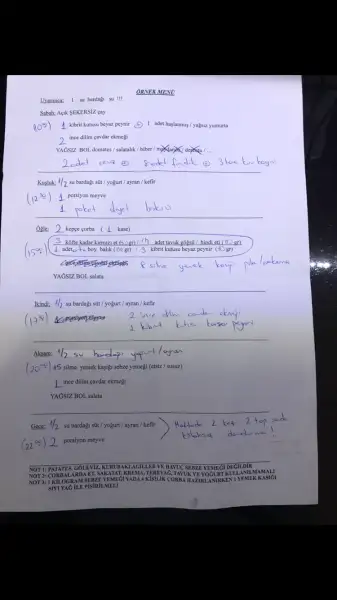 ÖRNEK MENÜ
Uyanınca: 1 su bardağı su !!!
Sabah: Açık ŞEKERSİZ çay
1 kibrit kutusu beyaz peynir 1 adet haşlanmış / yağsız yumurta
2 ince dilim çavdar ekmeği
YAĞSIZ BOL domates / salatalık / biber /
2 adet ceviz 8 adet fındık 3 kuru kayısı
Kuşluk: 1/2 su bardağı süt / yoğurt / ayran / kefir
1 porsiyon meyve
1 paket diyet bisküvi
Öğle: 2 kepçe çorba ( 1 kase)
3 köfte kadar kırmızı et
adet tavuk göğsü / hindi eti
boy. balık 3 kibrit kutusu beyaz peynir
8 yemek kaşığı
YAĞSIZ BOL salata
İkindi: 1/2 su bardağı süt / yoğurt / ayran / kefir
2 ince dilim çavdar ekmeği
1 kibrit kutusu beyaz peynir
Akşam: 1/2 su bardağı yoğurt / ayran
silme yemek kaşığı sebze yemeği (etsiz / susuz)
1 ince dilim çavdar ekmeği
YAĞSIZ BOL salata
Gece: 1/2 su bardağı süt / yoğurt / ayran / kefir
2 porsiyon meyve
Haftada 2 kez 2 top sade
dondurma !
NOT 1: PATATES, GÖLEVİZ, KURUBAKLAGİLLER VE HAVUÇ, SEBZE YEMEĞİ DEĞİLDİR
NOT 2: ÇORBALARDA ET, SAKATAT, KREMA, TEREYAĞ, TAVUK VE YOĞURT KULLANILMAMALI
NOT 3: 1 KİLOGRAM SEBZE YEMEĞİ YADA 4 KİŞİLİK ÇORBA HAZIRLANIRKEN 1 YEMEK KAŞIĞI
SIVI YAĞ İLE PİŞİRİLMELİ